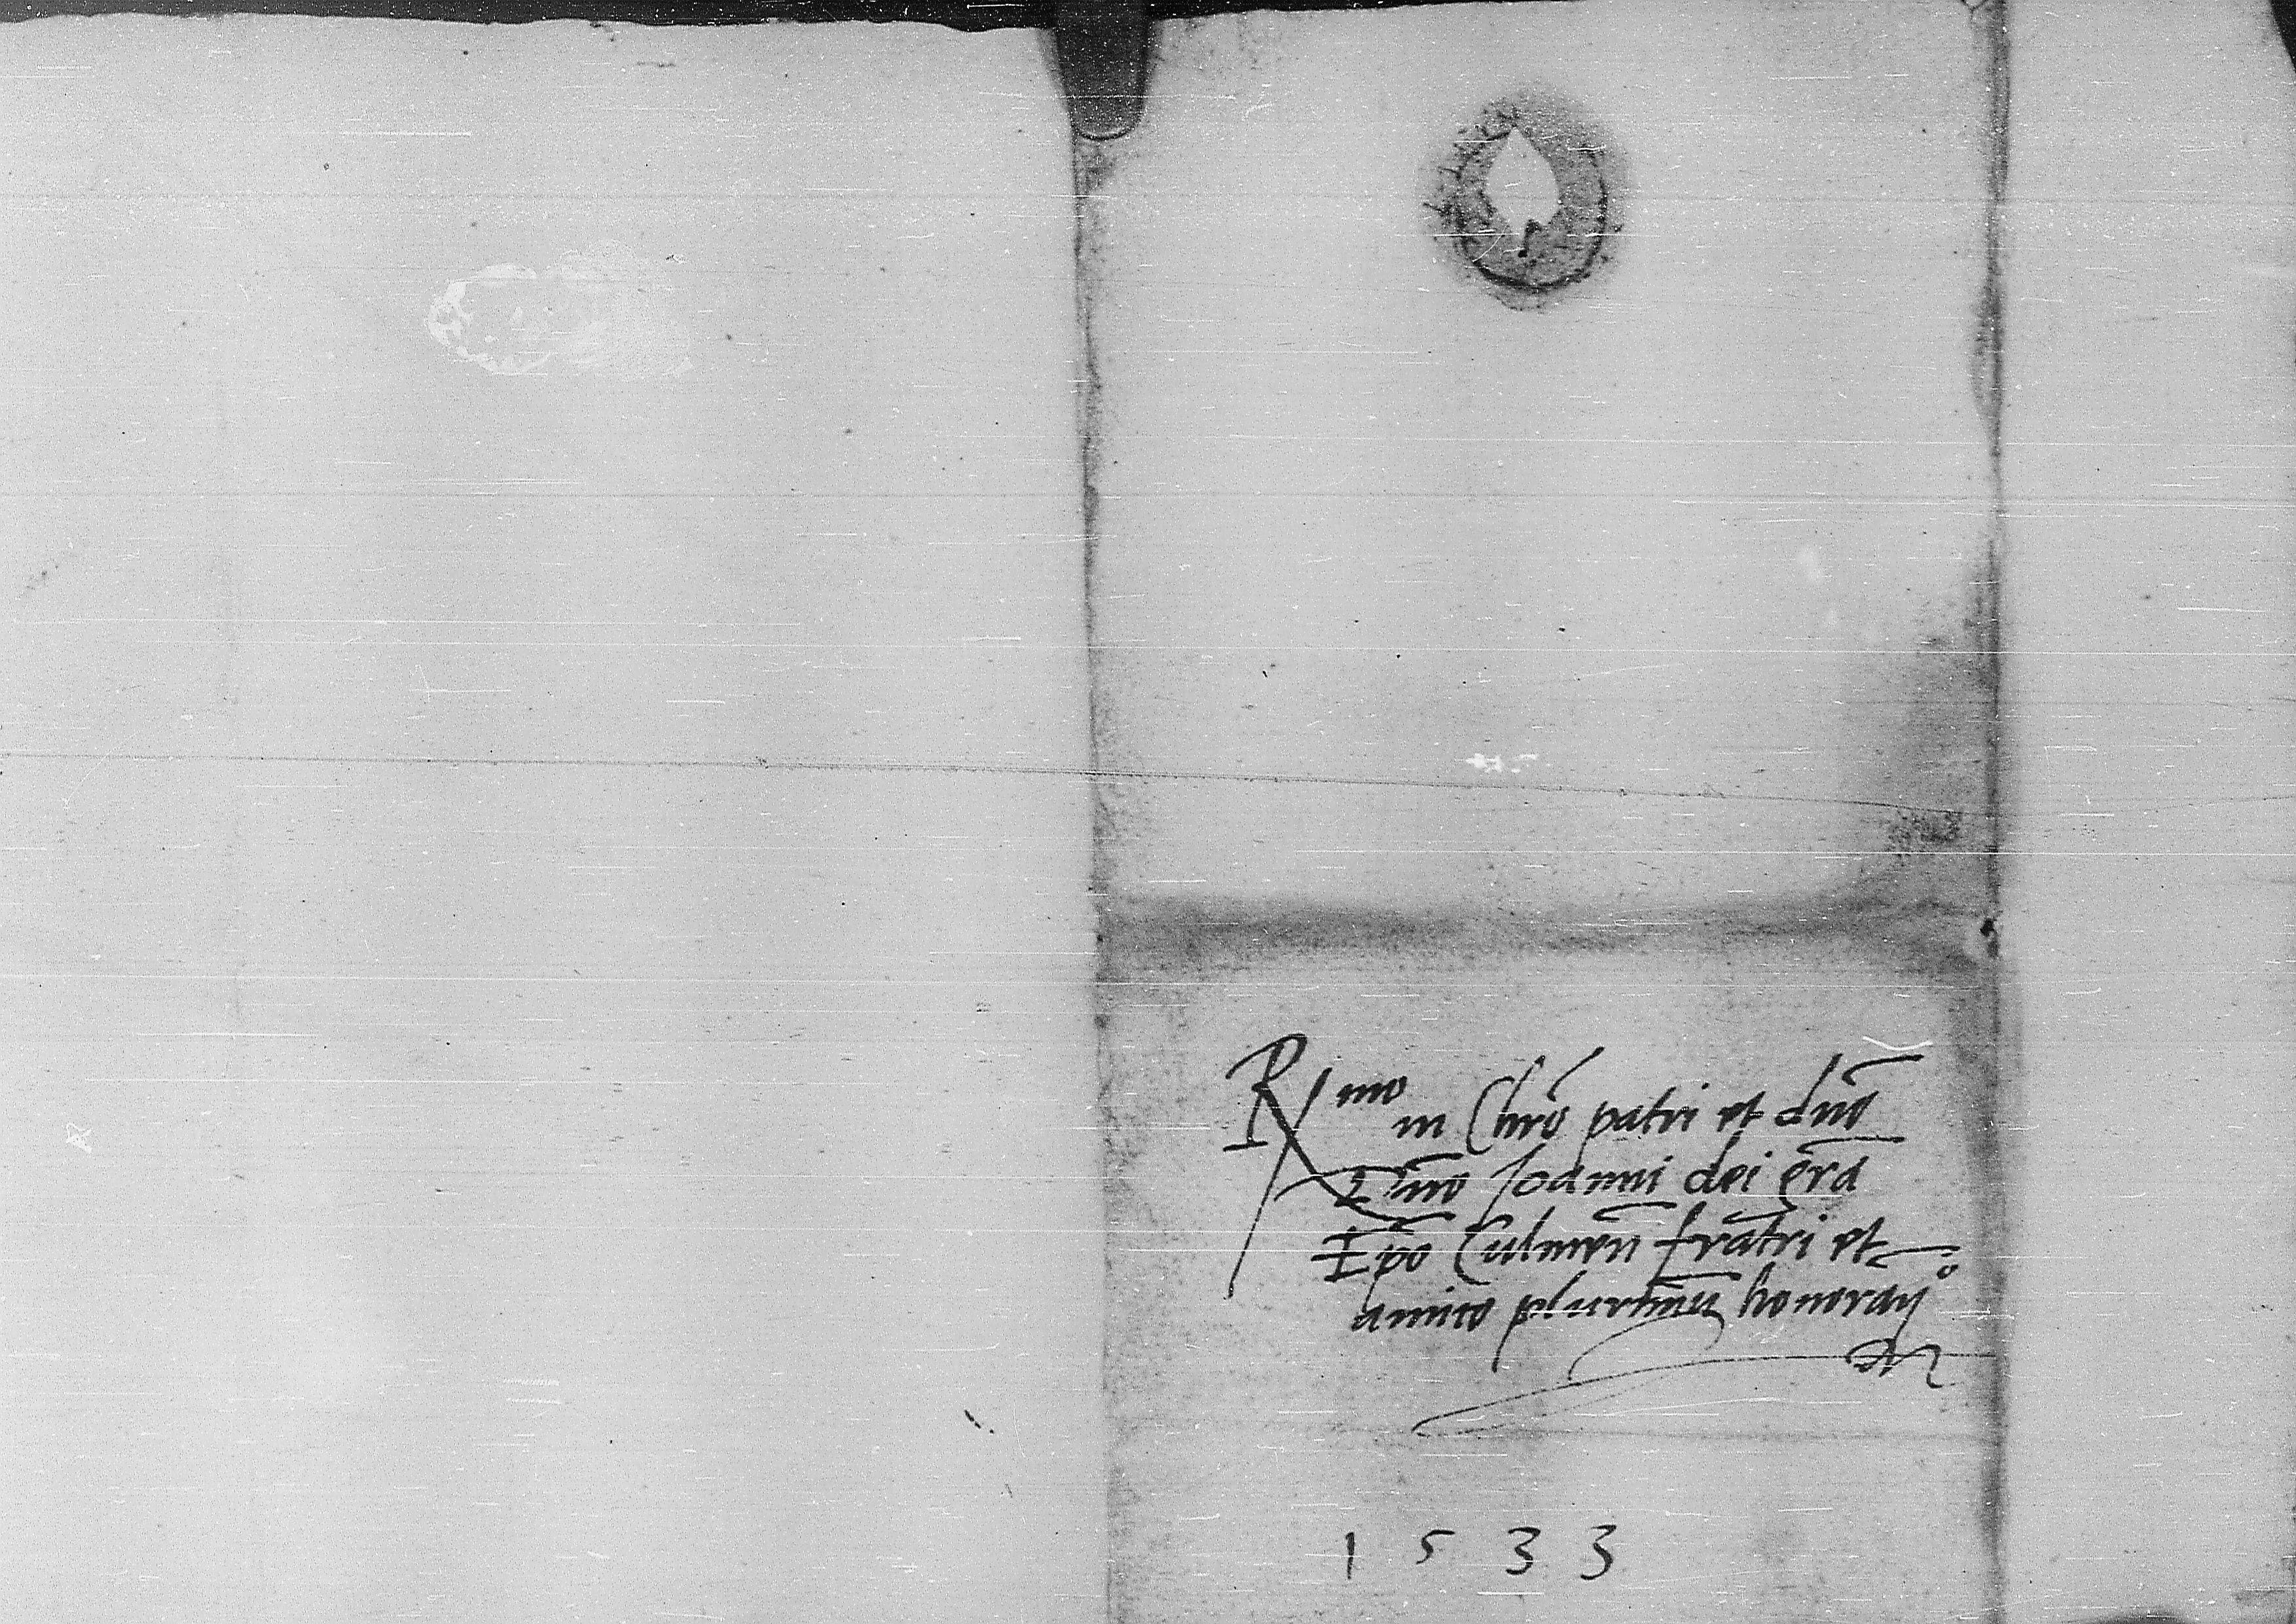 R^mo in Chr̄o patri et dn̄o
Dn̄o Ioanni dei gr̄a
Ep̄o Culmen̄ fratri et
amico plurimū honoran^o
1533